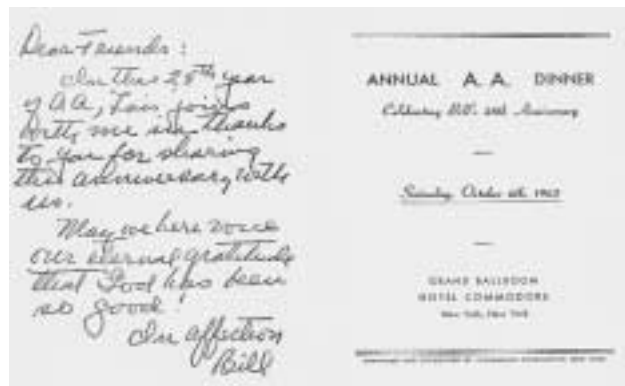 Dear Friends:
In this 28th year
of AA, Lois joins
with me in thanks
to you for sharing
this anniversary with
us.
May we here voice
our eternal gratitude
that God has been
so good!
In affection
Bill
ANNUAL A. A. DINNER
Celebrating Bill's 28th Anniversary
Saturday, October 6th, 1962
GRAND BALLROOM
HOTEL COMMODORE
New York, New York